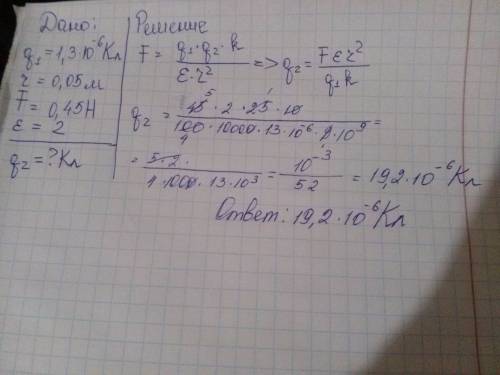 Дано:
q₁ = 1,3·10⁻⁶Кл
r = 0,05м
F = 0,45Н
ε = 2
q₂ = ? Кл
Решение
F = q₁·q₂·k / ε·r² => q₂ = Fεr² / q₁k
q₂ = 45·2·25·10 / 100·10000·13·10⁻⁶·9·10⁹ =
= 5·2 / 4·1000·13·10³ = 10⁻³ / 52 = 19,2·10⁻⁶Кл
Ответ: 19,2·10⁻⁶Кл